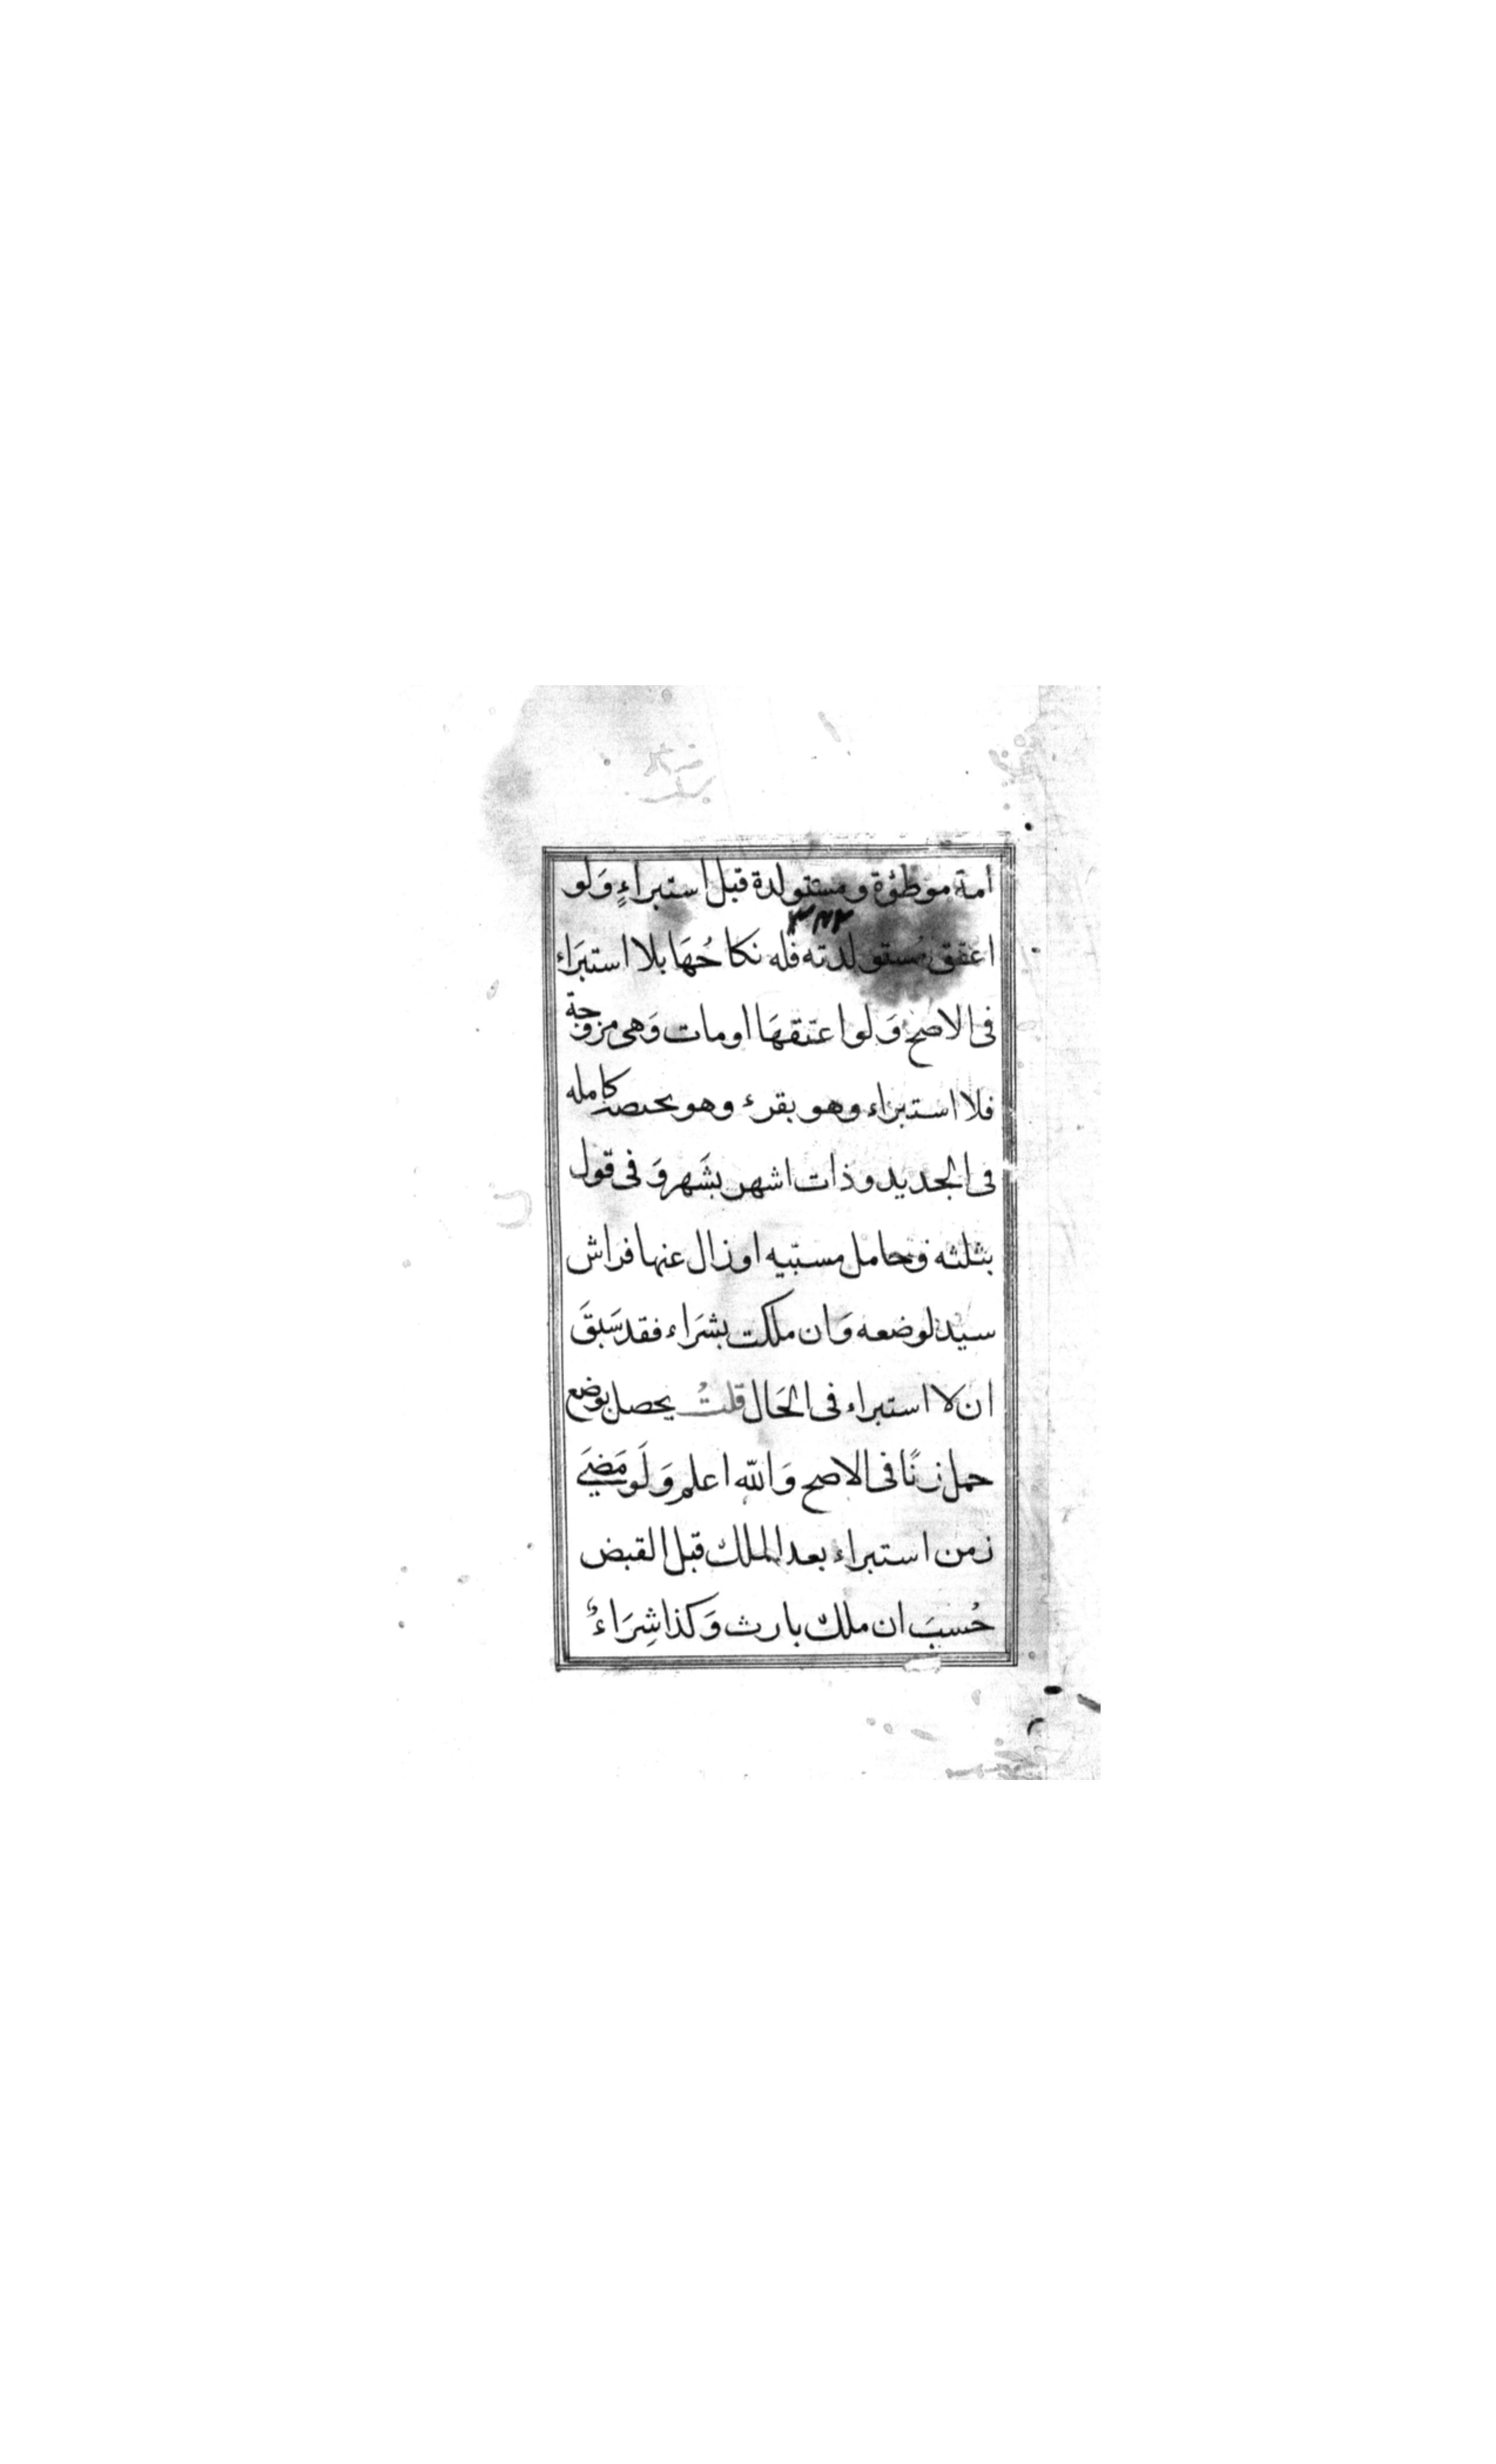 امة موطؤة ومستولدة قبل استبراءٍ وَلو
اعتق مستولدته فله نكاحُهَا بلا استبرَاء
فى الاصح وَلو اعتقهَا اومات وَهى مزوجة
فلا استبراء وهو بقرء وهو بحيضة كامله
فى الجديد وذات اشهر بشَهر وَفى قول
بثلثه وَحامل مسبّيه اوزال عنها فراش
سيّد لوضعه وَان ملكت بشرَاء فقد سَبقَ
ان لا استبراء فى الحَال قلتُ يحصل بوضع
حمل زنًا فى الاصح وَالله اعلم وَلَو مَضَىَ
زمن استبراء بعد الملك قبل القبض
حُسبَ ان ملك بارث وَكذا شِرَاءٌ